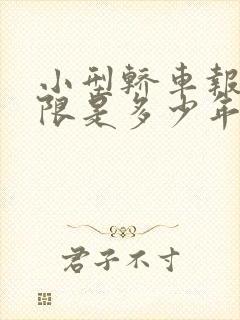 小型轎車報
限是多少年
君子不寸